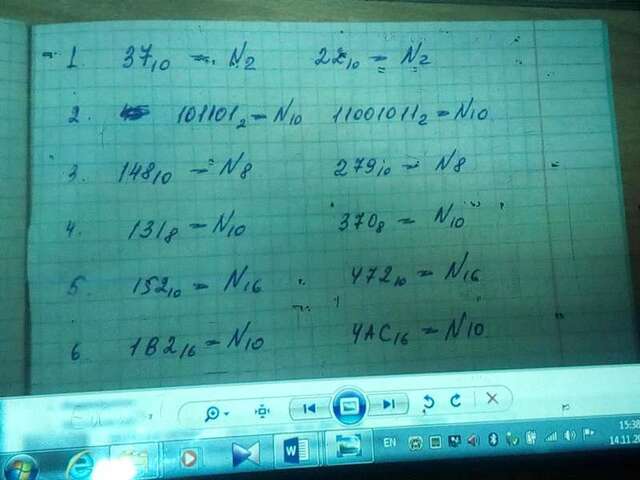 1. 37₁₀ = N₂ 22₁₀ = N₂
2. 101101₂ = N₁₀ 11001011₂ = N₁₀
3. 148₁₀ = N₈ 279₁₀ = N₈
4. 131₈ = N₁₀ 370₈ = N₁₀
5. 152₁₀ = N₁₆ 472₁₀ = N₁₆
6 1B2₁₆ = N₁₀ 4AC₁₆ = N₁₀
EN 15:38
14.11.20